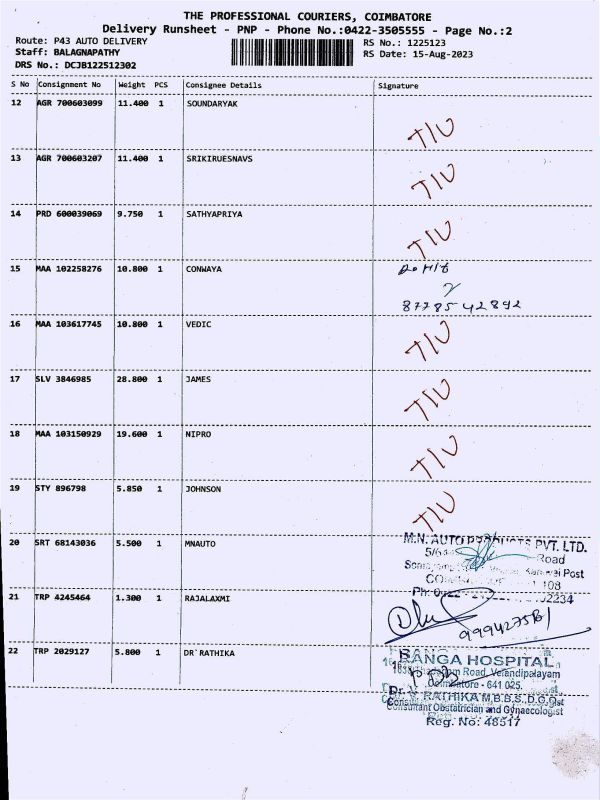 THE PROFESSIONAL COURIERS, COIMBATORE
Delivery Runsheet - PNP - Phone No.:0422-3505555 - Page No.:2
Route: P43 AUTO DELIVERY
RS No.: 1225123
Staff: BALAGNAPATHY
RS Date: 15-Aug-2023
DRS No.: DCJB122512302
S No Consignment No Weight PCS Consignee Details Signature
12 AGR 700603099 11.400 1 SOUNDARYAK
T/U
13 AGR 700603207 11.400 1 SRIKIRUESNAVS
T/U
14 PRD 600039069 9.750 1 SATHYAPRIYA
T/U
15 MAA 102258276 10.800 1 CONWAYA
87785 42892
16 MAA 103617745 10.800 1 VEDIC
T/U
17 SLV 3846985 28.800 1 JAMES
T/U
18 MAA 103150929 19.600 1 NIPRO
T/U
19 STY 896798 5.850 1 JOHNSON
T/U
20 SRT 68143036 5.500 1 MNAUTO
M.N. AUTO PRODUCTS PVT. LTD.
Road
Post
21 TRP 4245464 1.300 1 RAJALAXMI
22 TRP 2029127 5.800 1 DR RATHIKA
RANGA HOSPITAL
Road, Velandipalayam
Coimbatore - 641 025.
Dr. V. RATHIKA M.B.B.S., D.G.O.
Consultant Obstatrician and Gynaecologist
Reg. No: 48517